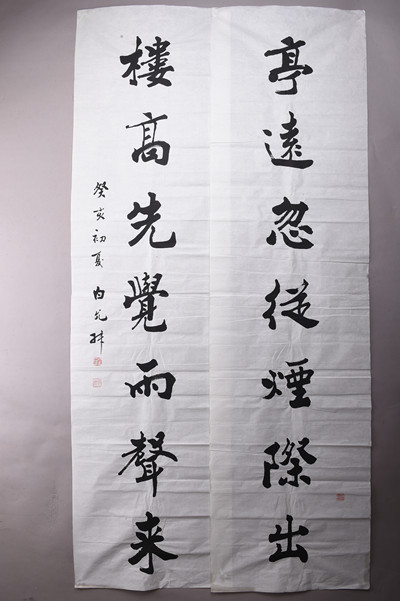 亭遠忽從煙際出
樓高先覺雨聲来
癸亥初夏 白允叔